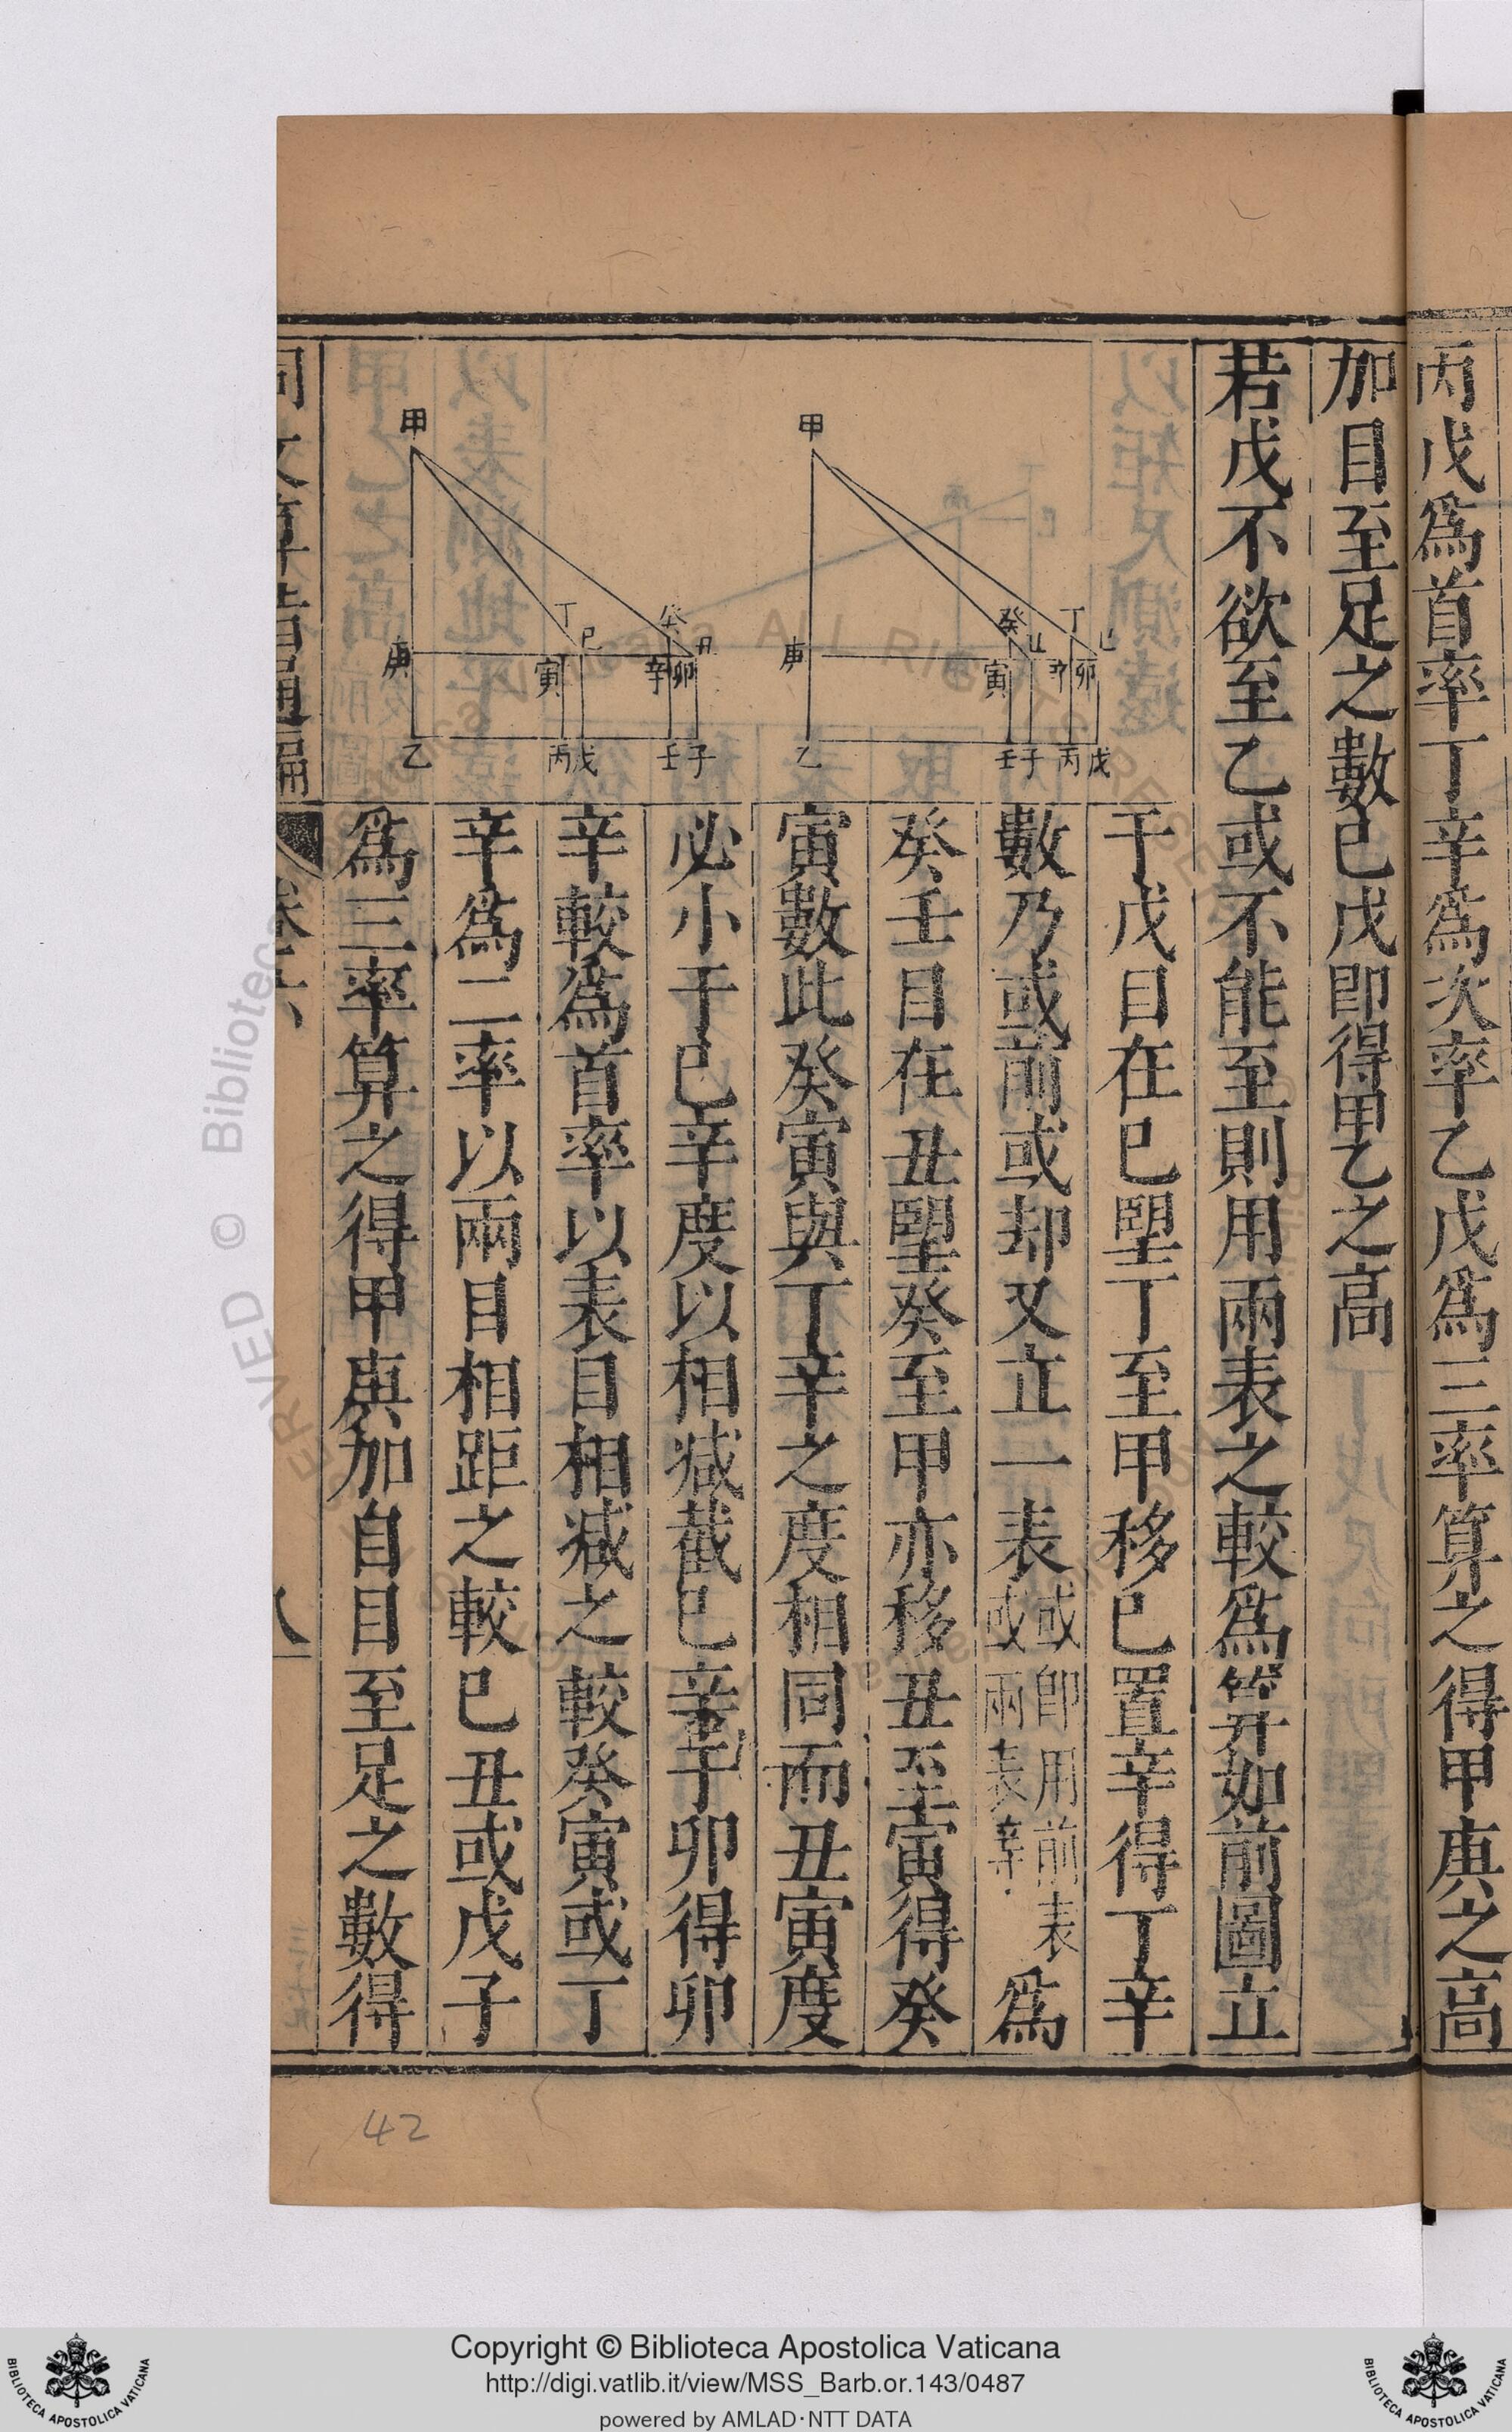 丙戊爲首率丁辛爲次率乙戊爲三率算之得甲庚之高
加目至足之數巳戊即得甲乙之高
若戊不欲至乙或不能至則用兩表之較爲算如前圖立
于戊目在巳朢丁至甲移巳置辛得丁辛
數乃或前或却又立一表或卽用前表或兩表等爲
癸壬目在丑朢癸至甲亦移丑至寅得癸
寅數此癸寅與丁辛之度相同而丑寅度
必小于巳辛度以相减截巳辛于卯得卯
辛較爲首率以表目相减之較癸寅或丁
辛爲二率以兩目相距之較巳丑或戊子
爲三率算之得甲庚加自目至足之數得
甲
丁
巳
癸
丑
庚
寅
辛
卯
乙
丙
戊
壬
子
甲
癸
丑
丁
巳
庚
寅
辛
卯
乙
壬
子
丙
戊
同文算指通編
卷六
八
42
© Biblioteca
Copyright © Biblioteca Apostolica Vaticana
http://digi.vatlib.it/view/MSS_Barb.or.143/0487
powered by AMLAD·NTT DATA
BIBLIOTECA APOSTOLICA VATICANA
BIBLIOTECA APOSTOLICA VATICANA